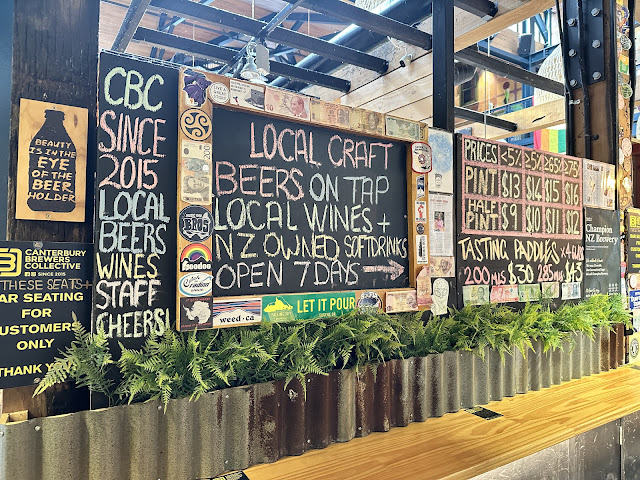 BEAUTY
IS IN THE
EYE
OF THE
BEER
HOLDER
CANTERBURY
BREWERS
COLLECTIVE
SINCE 2015
THESE SEATS +
AR SEATING
FOR
CUSTOMERS
ONLY
THANK Y
CBC
SINCE
2015
LOCAL
BEERS
WINES
STAFF
CHEERS!
LOCAL CRAFT
BEERS ON TAP
LOCAL WINES +
NZ OWNED SOFTDRINKS
OPEN 7 DAYS →
BROS
Spoodoo
weed.ca
LET IT POUR
PRICES <5% >5% >6.5% >7.5
PINT $13 $14 $15 $16
HALF PINT $9 $10 $11 $12
TASTING PADDLES × 4
200 MLS $30 285 MLS $43
Champion
NZ Brewery